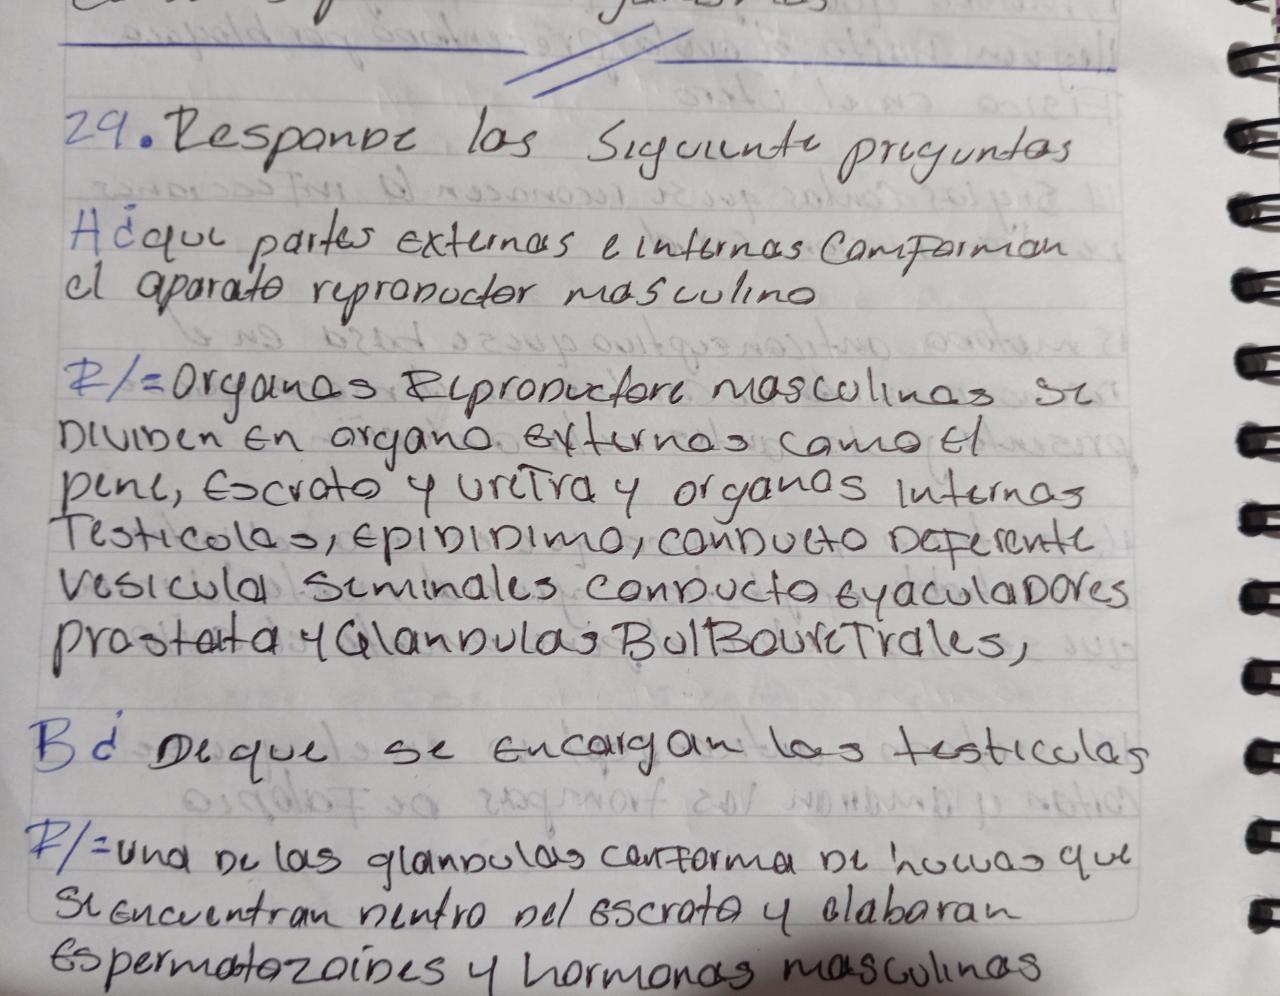 29. Responde las Siguiente preguntas
A ¿que partes externas e internas Comforman
el aparato reproductor masculino
R/= Organos Reproductore masculinos se
Dividen En organo externos como El
pene, Escroto y uretra y organos internos
Testicolos, EpiDiDimo, conDucto Deferente
vesicula seminales conDucto eyaculaDores
prostata y GlanDulas BulBoureTrales,
B ¿ De que se encargan los testiculos
R/= una De las glanDulas conforma De huevos que
se encuentran Dentro Del escroto y elaboran
Espermatozoides y hormonas masculinas